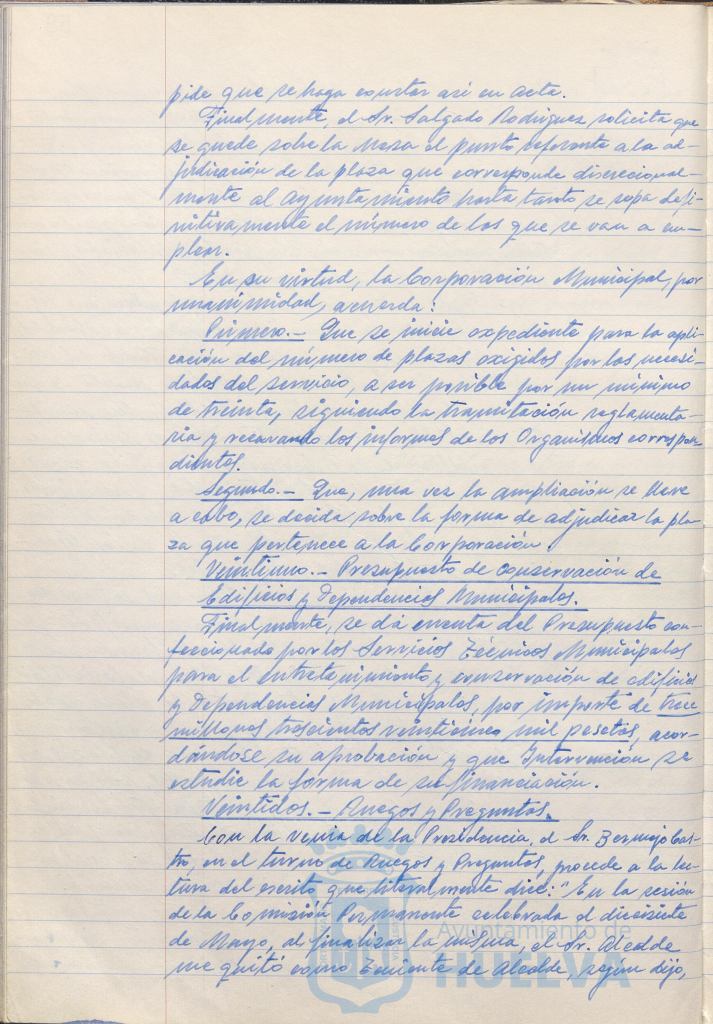 pide que se haga constar así en acta.
Finalmente, el Sr. Salgado Rodriguez solicita que
se quede sobre la Mesa el punto referente a la ad-
judicación de la plaza que corresponde discrecional-
mente al Ayuntamiento hasta tanto se sepa defi-
nitivamente el número de las que se van a em-
plear.
En su virtud, la Corporación Municipal, por
unanimidad, acuerda:
Primero.- Que se inicie expediente para la apli-
cación del número de plazas exigidos por las necesi-
dades del servicio, a ser posible por un mínimo
de treinta, siguiendo la tramitación reglamenta-
ria y recavando los informes de los Organismos correspon-
dientes.
Segundo.- Que, una vez la ampliación se lleve
a cabo, se decida sobre la forma de adjudicar la pla-
za que pertenece a la Corporación.
Veintiuno.- Presupuesto de conservación de
Edificios y Dependencias Municipales.
Finalmente, se dá cuenta del Presupuesto con-
feccionado por los Servicios Técnicos Municipales
para el entretenimiento y conservación de edificios
y Dependencias Municipales, por importe de trece
millones trescientos veinticinco mil pesetas, acor-
dándose su aprobación y que Intervención se
estudie la forma de su financiación.
Veintidos.- Ruegos y Preguntas.
Con la venia de la Presidencia, el Sr. Bermejo Cas-
tro, en el turno de Ruegos y Preguntas, procede a la lec-
tura del escrito que literalmente dice: "En la sesión
de la Comisión Permanente celebrada el diecisiete
de Mayo, al finalizar la misma, el Sr. Alcalde
me quitó como Teniente de Alcalde, según dijo,
Ayuntamiento de
HUELVA